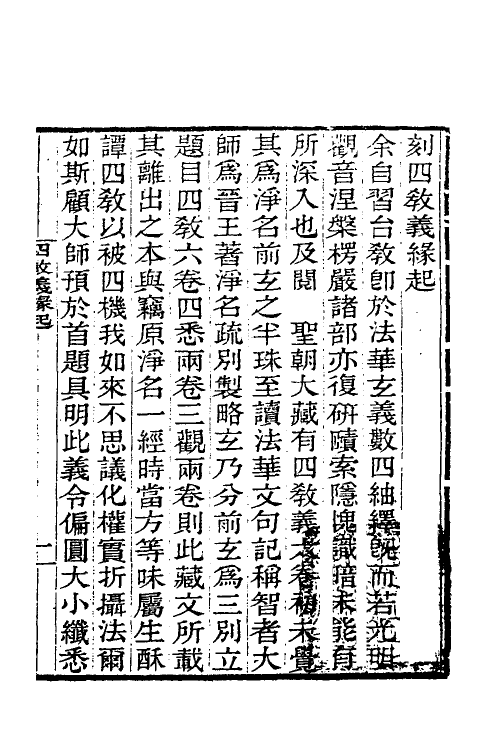 刻四敎義緣起
余自習台敎卽於法華玄義數四紬繹旣而若光明
觀音涅槃楞嚴諸部亦復硏賾索隱愧識暗未能有
所深入也及閱　聖朝大藏有四敎義六卷初未覺
其爲淨名前玄之半珠至讀法華文句記稱智者大
師爲晉王著淨名疏別製略玄乃分前玄爲三別立
題目四敎六卷四悉兩卷三觀兩卷則此藏文所載
其離出之本與竊原淨名一經時當方等味屬生酥
譚四敎以被四機我如來不思議化權實折攝法爾
如斯顧大師預於首題具明此義令偏圓大小纖悉
四敎義緣起
一